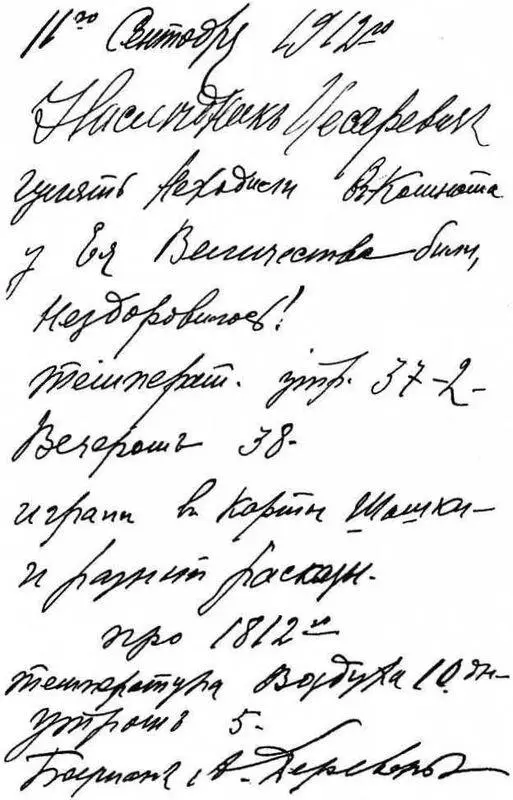 11го Сентября 1912го
Наследникъ Цесаревичъ
гулять неходили въ Комнота
у Ея Величества были,
нездоровилось!
температ. утр. 37-2-
Вечеромъ 38-
играли въ Корты Шашки-
и разныи расказы.
про 1812го
температура Воздуха 10. дн-
утромъ 5-
Боцмонъ А. Деревенько